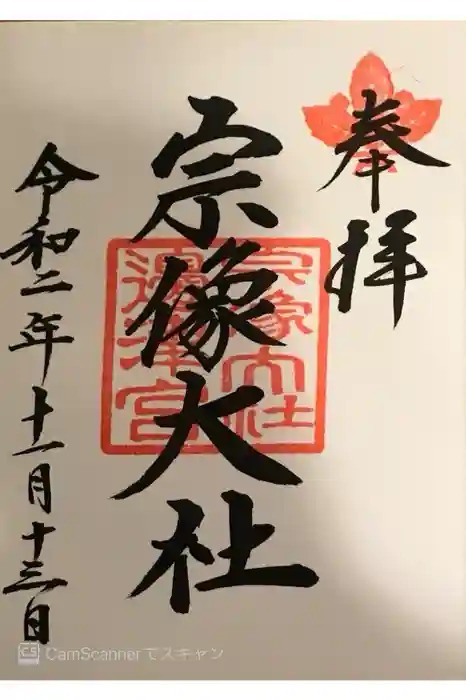 奉拝
宗像大社
宗像大社
邊津宮
令和二年十一月十三日
CS CamScannerでスキャン